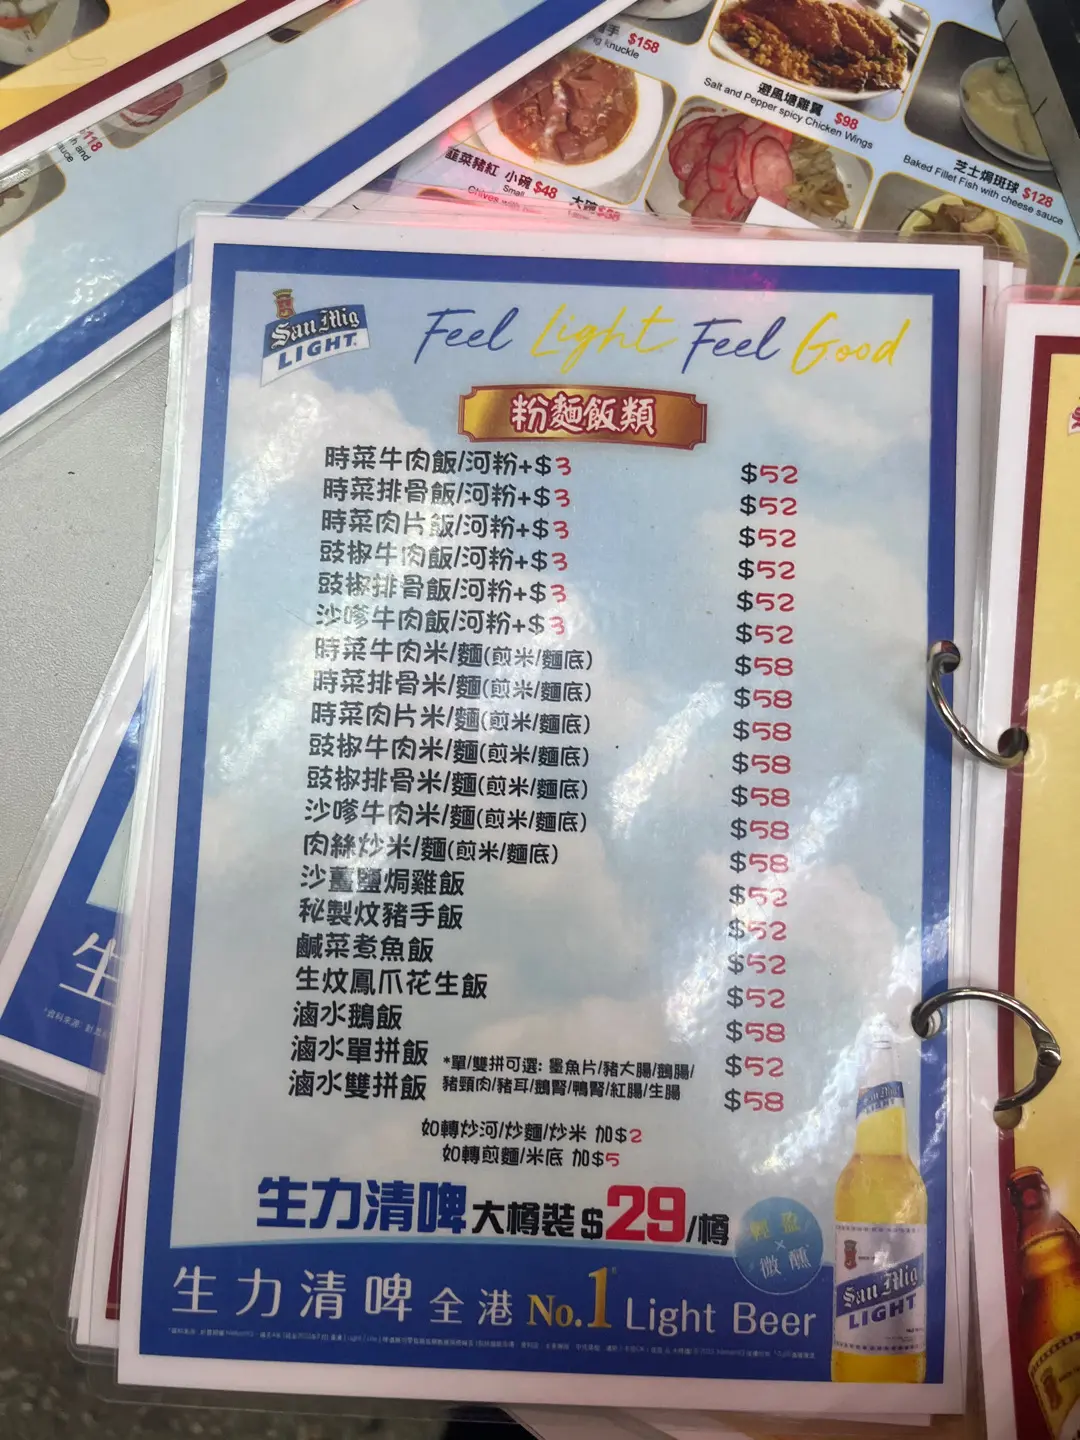 $158
knuckle
避風塘雞翼 $98
Salt and Pepper spicy Chicken Wings
芝士焗斑球 $128
Baked Fillet Fish with cheese sauce
韮菜豬紅 小碗 $48 大碗 $58
Small
Chives with
118
h and
uce
San Mig
LIGHT
Feel Light Feel Good
粉麵飯類
時菜牛肉飯/河粉+$3 $52
時菜排骨飯/河粉+$3 $52
時菜肉片飯/河粉+$3 $52
豉椒牛肉飯/河粉+$3 $52
豉椒排骨飯/河粉+$3 $52
沙嗲牛肉飯/河粉+$3 $52
時菜牛肉米/麵(煎米/麵底) $58
時菜排骨米/麵(煎米/麵底) $58
時菜肉片米/麵(煎米/麵底) $58
豉椒牛肉米/麵(煎米/麵底) $58
豉椒排骨米/麵(煎米/麵底) $58
沙嗲牛肉米/麵(煎米/麵底) $58
肉絲炒米/麵(煎米/麵底) $58
沙薑鹽焗雞飯 $52
秘製炆豬手飯 $52
鹹菜煮魚飯 $52
生炆鳳爪花生飯 $52
滷水鵝飯 $58
滷水單拼飯 $52
滷水雙拼飯 $58
*單/雙拼可選: 墨魚片/豬大腸/鵝腸/
豬頸肉/豬耳/鵝腎/鴨腎/紅腸/生腸
如轉炒河/炒麵/炒米 加$2
如轉煎麵/米底 加$5
生力清啤 大樽裝 $29/樽
輕盈
×
微醺
生力清啤 全港 No.1 Light Beer
San Mig
LIGHT
生